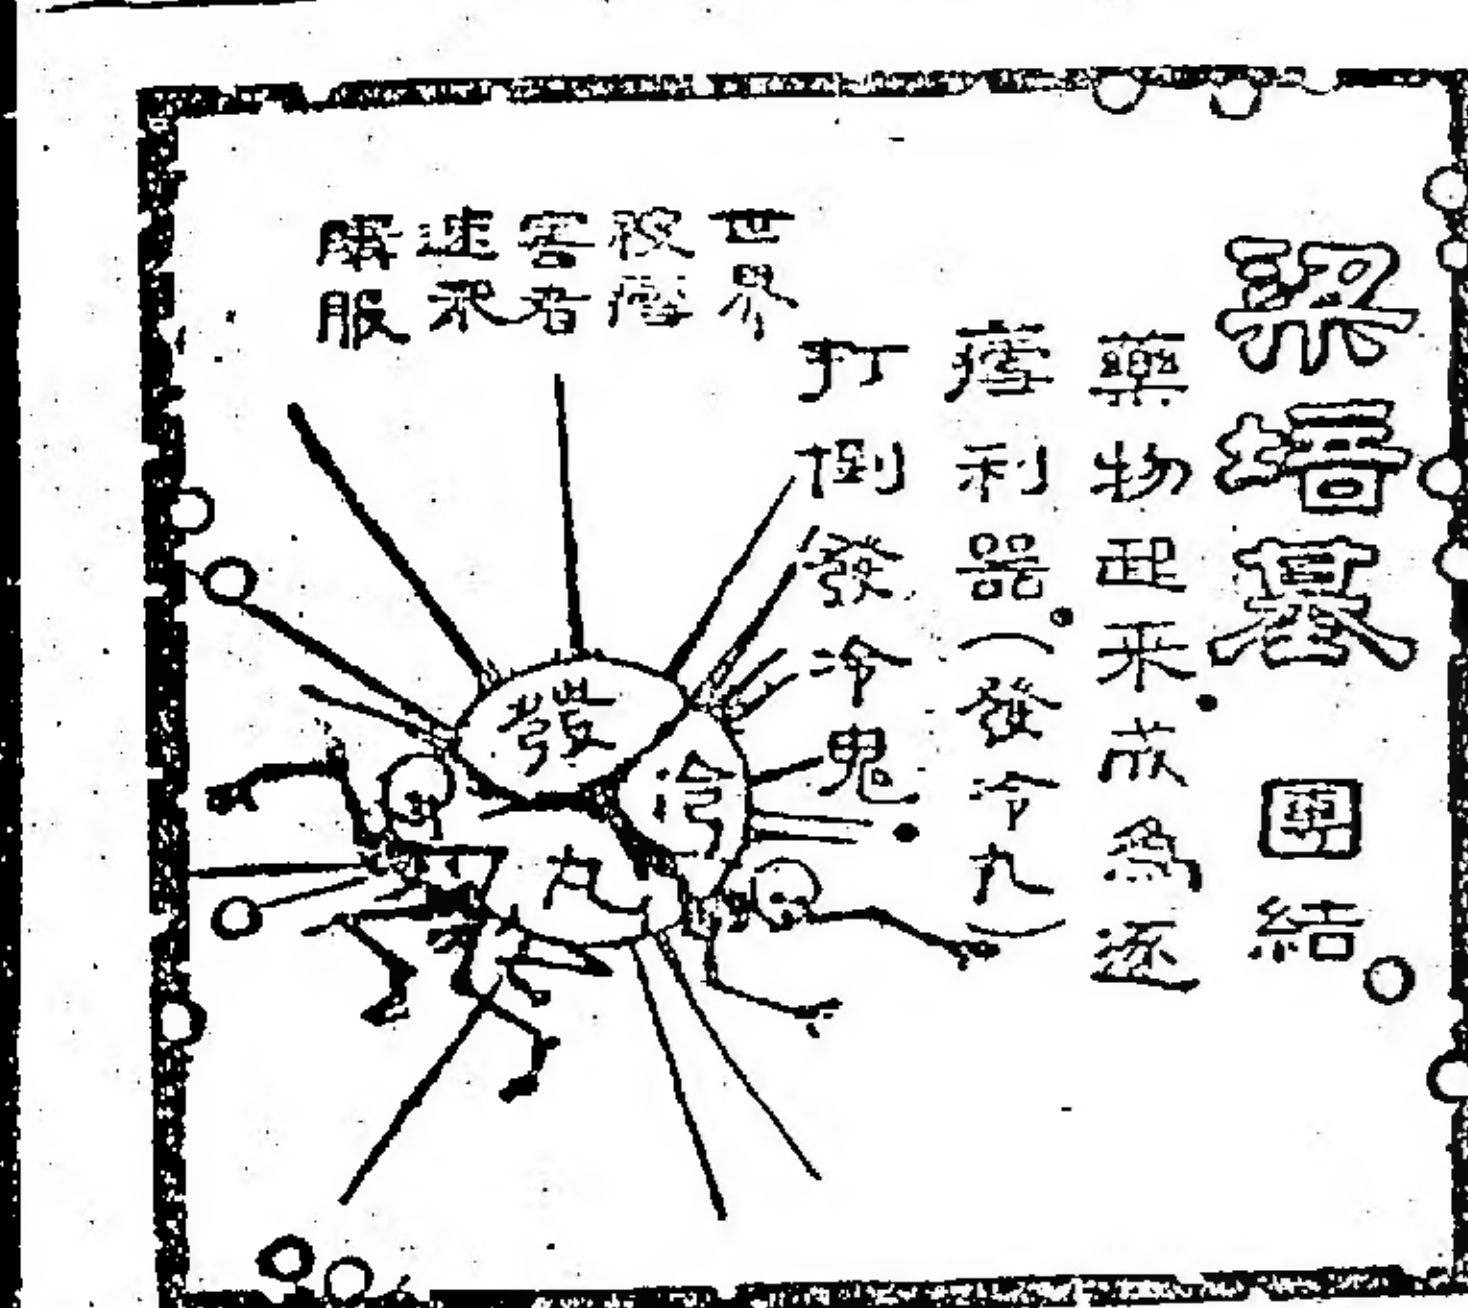 梁培基 團結
藥物起来。成為逐
瘧利器。(發冷丸)
打倒發冷鬼。
世界
被瘧
害者
速来
購服
發
冷
丸